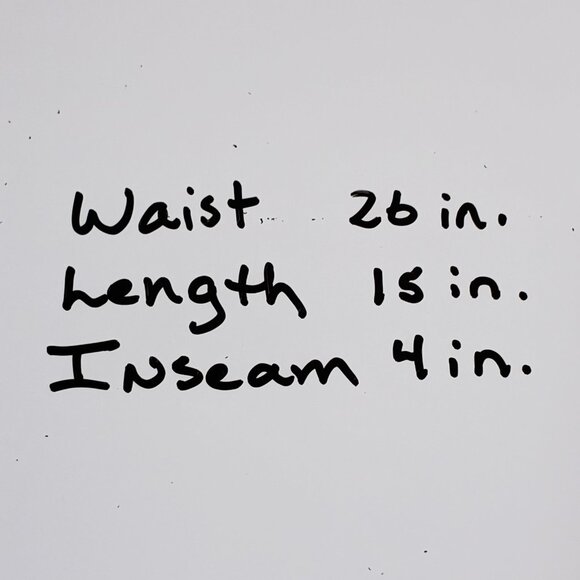 Waist 26 in.
Length 15 in.
Inseam 4 in.